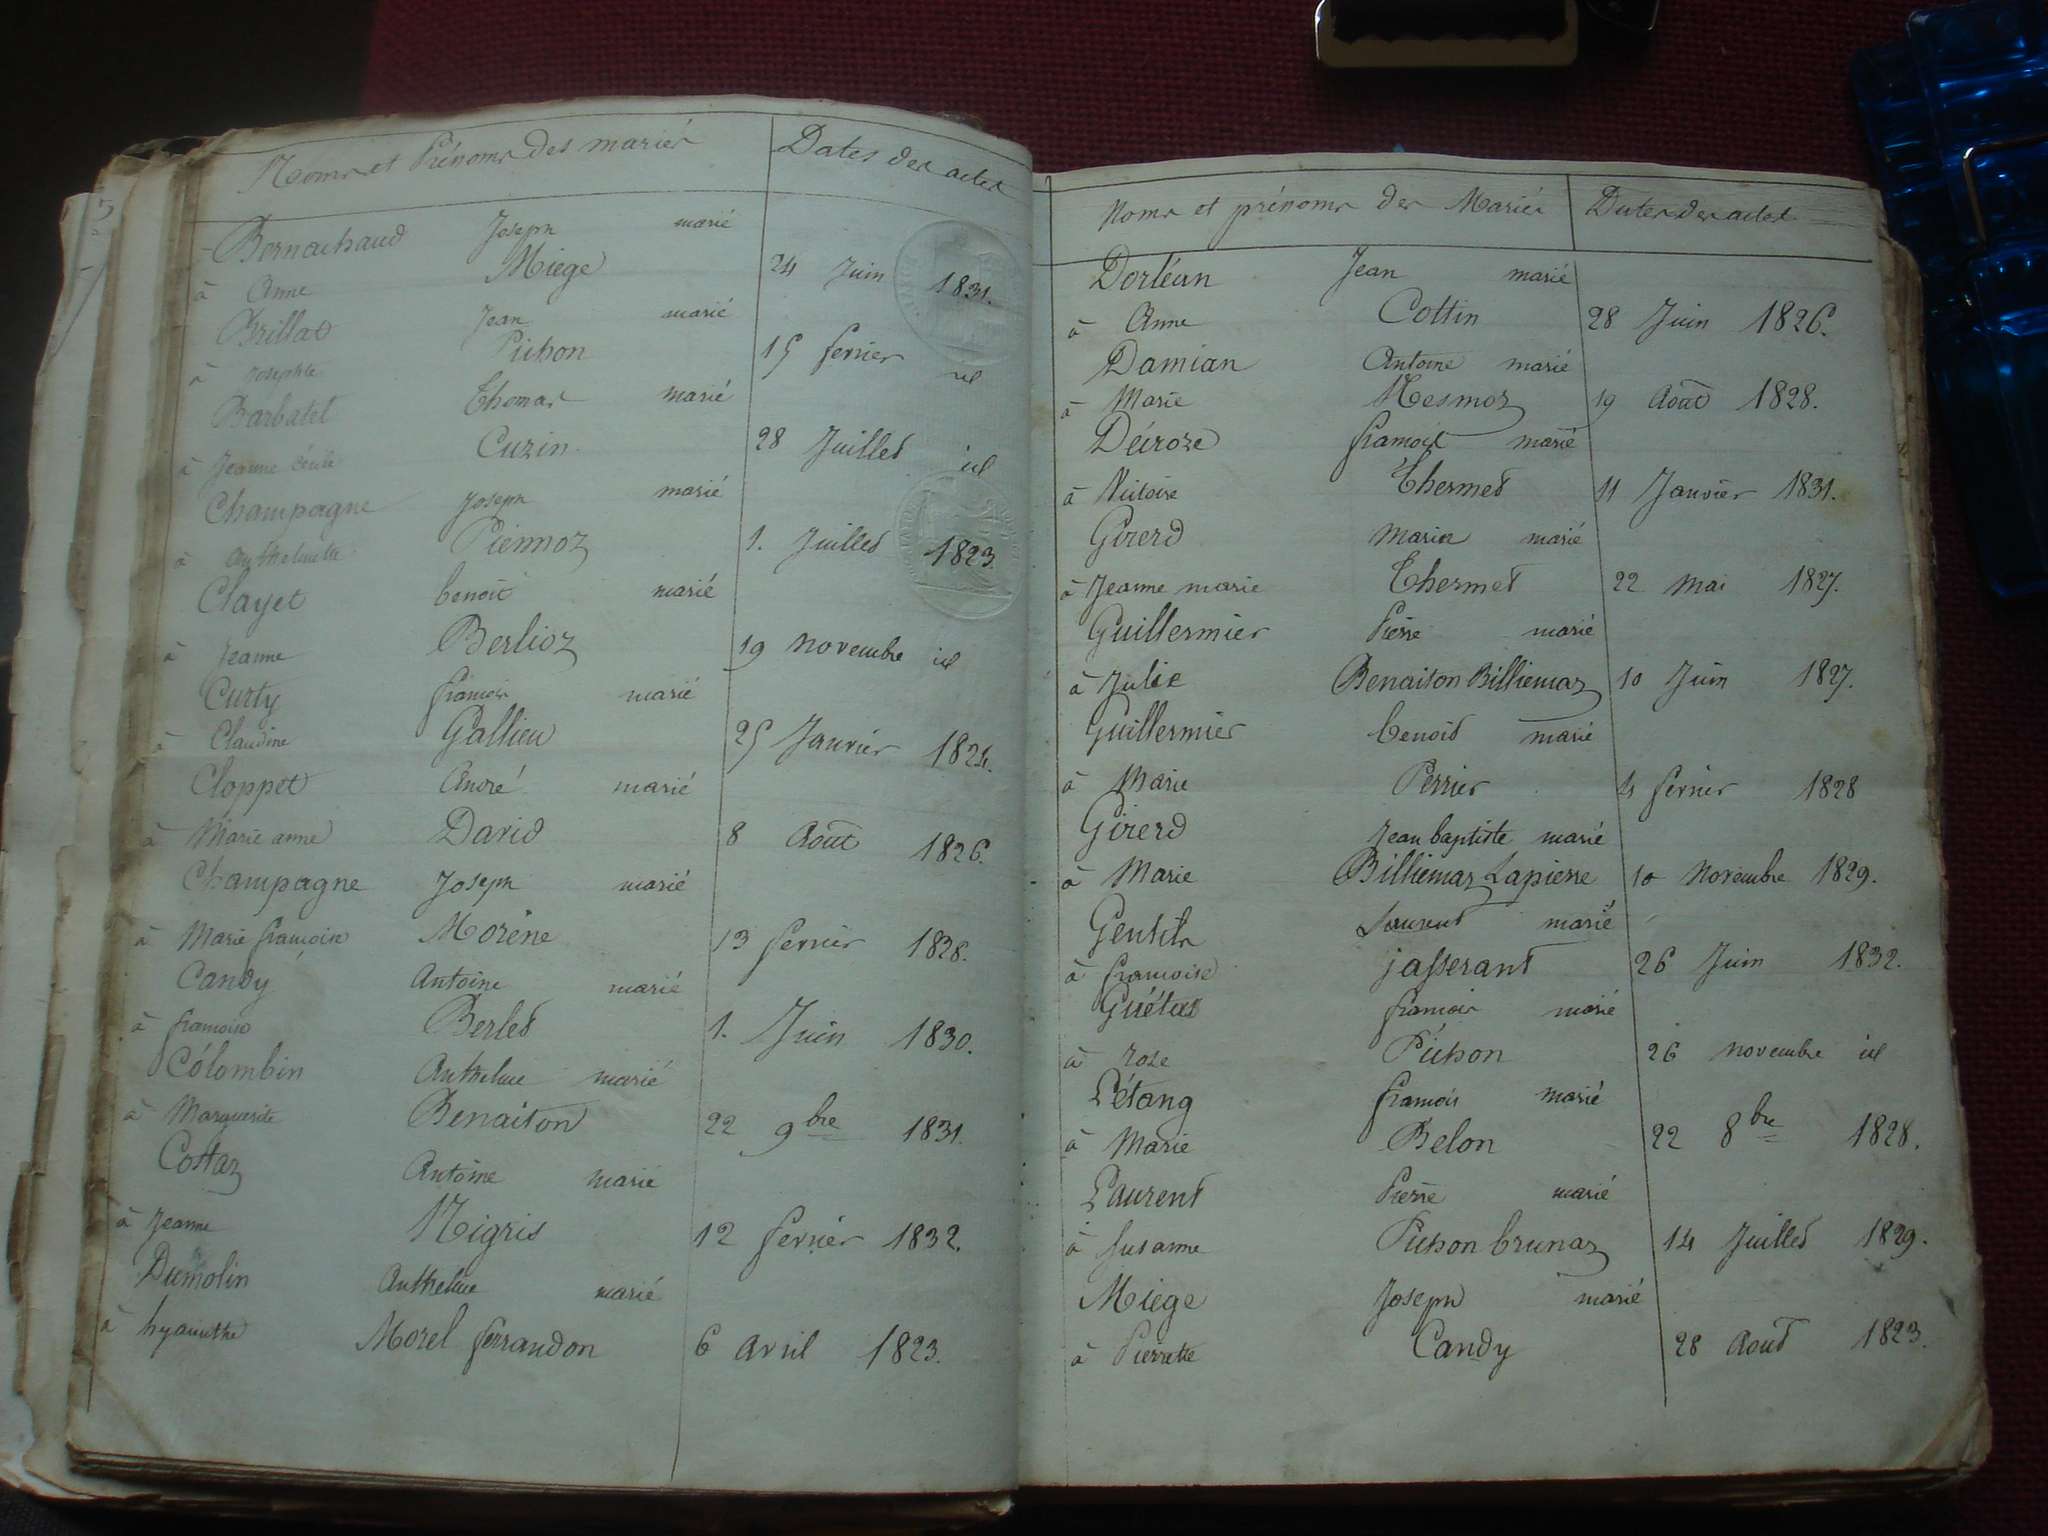 Noms et Prénoms des mariés Dates des actes
Bernachaud Joseph marié
à Anne Miege 24 Juin 1831.
Brillat Jean marié
à Josephte Pichon 15 fevrier id
Barbatet Thomas marié
à Jeanne Cécile Cuzin 28 Juillet id
Champagne Joseph marié
à Anthelmette 1. Juillet 1823.
Clayet benoit marié
à Jeanne Berlioz 19 novembre id
Curty francois marié
à Claudine Gallieu 25 Janvier 1824.
Cloppet André marié
à Marie anne David 8 Août 1826.
Champagne Joseph marié
à Marie francoise Moréne 13 fevrier 1828.
Candy Antoine marié
à francoise Berlet 1. Juin 1830.
Colombin Anthelme marié
à Marguerite Benaiton 22 9bre 1831.
Costaz Antoine marié
à Jeanne Nigris 12 fevrier 1832.
Dumolin Anthelme marié
à hyacinthe Morel ferrandon 6 Avril 1823.
Noms et prénoms des Mariés Dates des actes
Dorléan Jean marié
à Anne Cottin 28 Juin 1826.
Damian Antoine marié
à Marie Mesmoz 19 Août 1828.
Décroze francois marié
à Victoire Thermet 11 Janvier 1831.
Girerd Marin marié
à Jeanne marie Thermet 22 Mai 1827.
Guillermier Pierre marié
à Julie Benaiton Billiemaz 10 Juin 1827.
Guillermier benoit marié
à Marie Perrier 4 fevrier 1828
Girerd Jean baptiste marié
à Marie Billiemaz Lapierre 10 Novembre 1829.
Gentils Laurent marié
à francoise jasserant 26 Juin 1832.
francois marié
à rose Pichon 26 novembre id
Létang francois marié
à Marie Belon 22 8bre 1828.
Laurent Pierre marié
à Susanne Pichon brunaz 14 Juillet 1829.
Miege Joseph marié
à Pierrette Candy 28 Aout 1823.